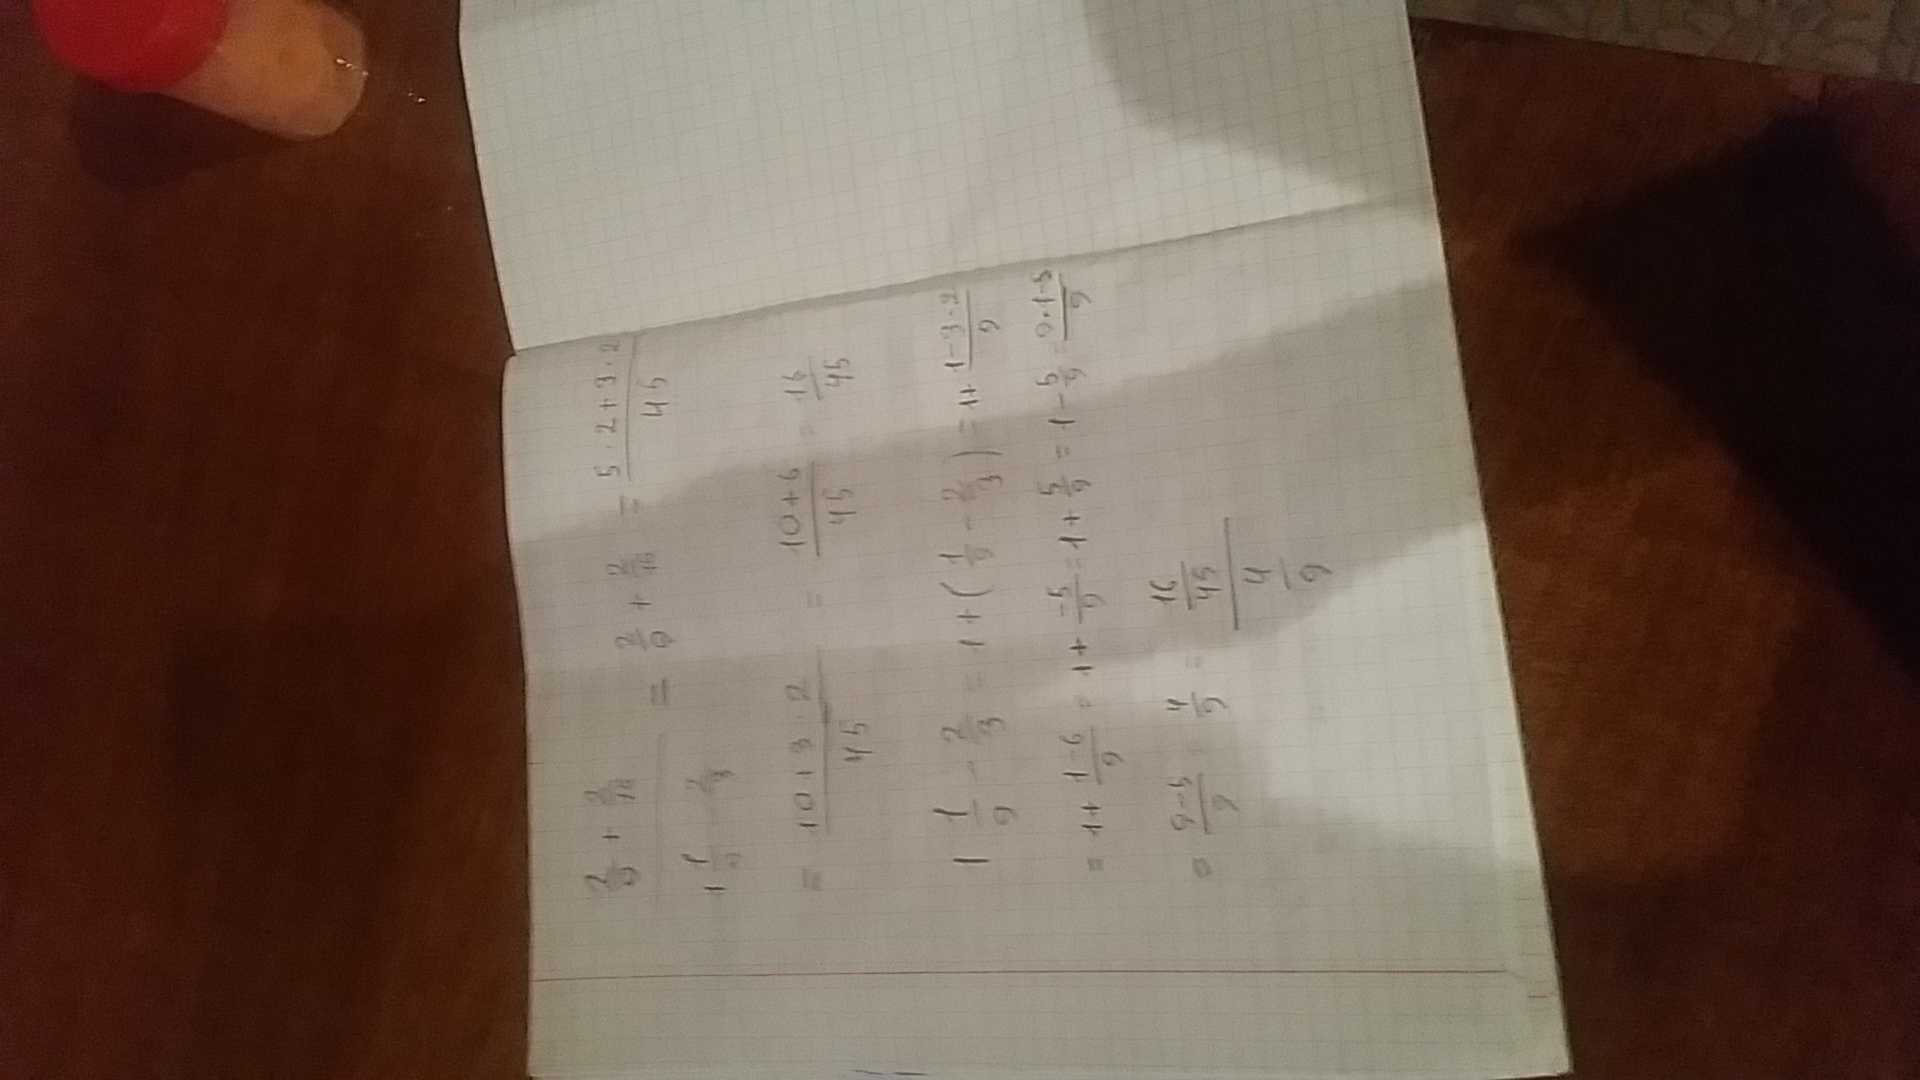 2/9 + 2/15 = 2/9 + 2/15 = (5 · 2 + 3 · 2)/45
1 1/9 - 2/3
= (10 + 3 · 2)/45 = (10 + 6)/45 = 16/45
1 1/9 - 2/3 = 1 + (1/9 - 2/3) = 1 + (1 - 3 · 2)/9
= 1 + (1 - 6)/9 = 1 + -5/9 = 1 + 5/9 = 1 - 5/9 = (9 · 1 - 5)/9
= (9 - 5)/9 = 4/9 = (16/45)/(4/9)